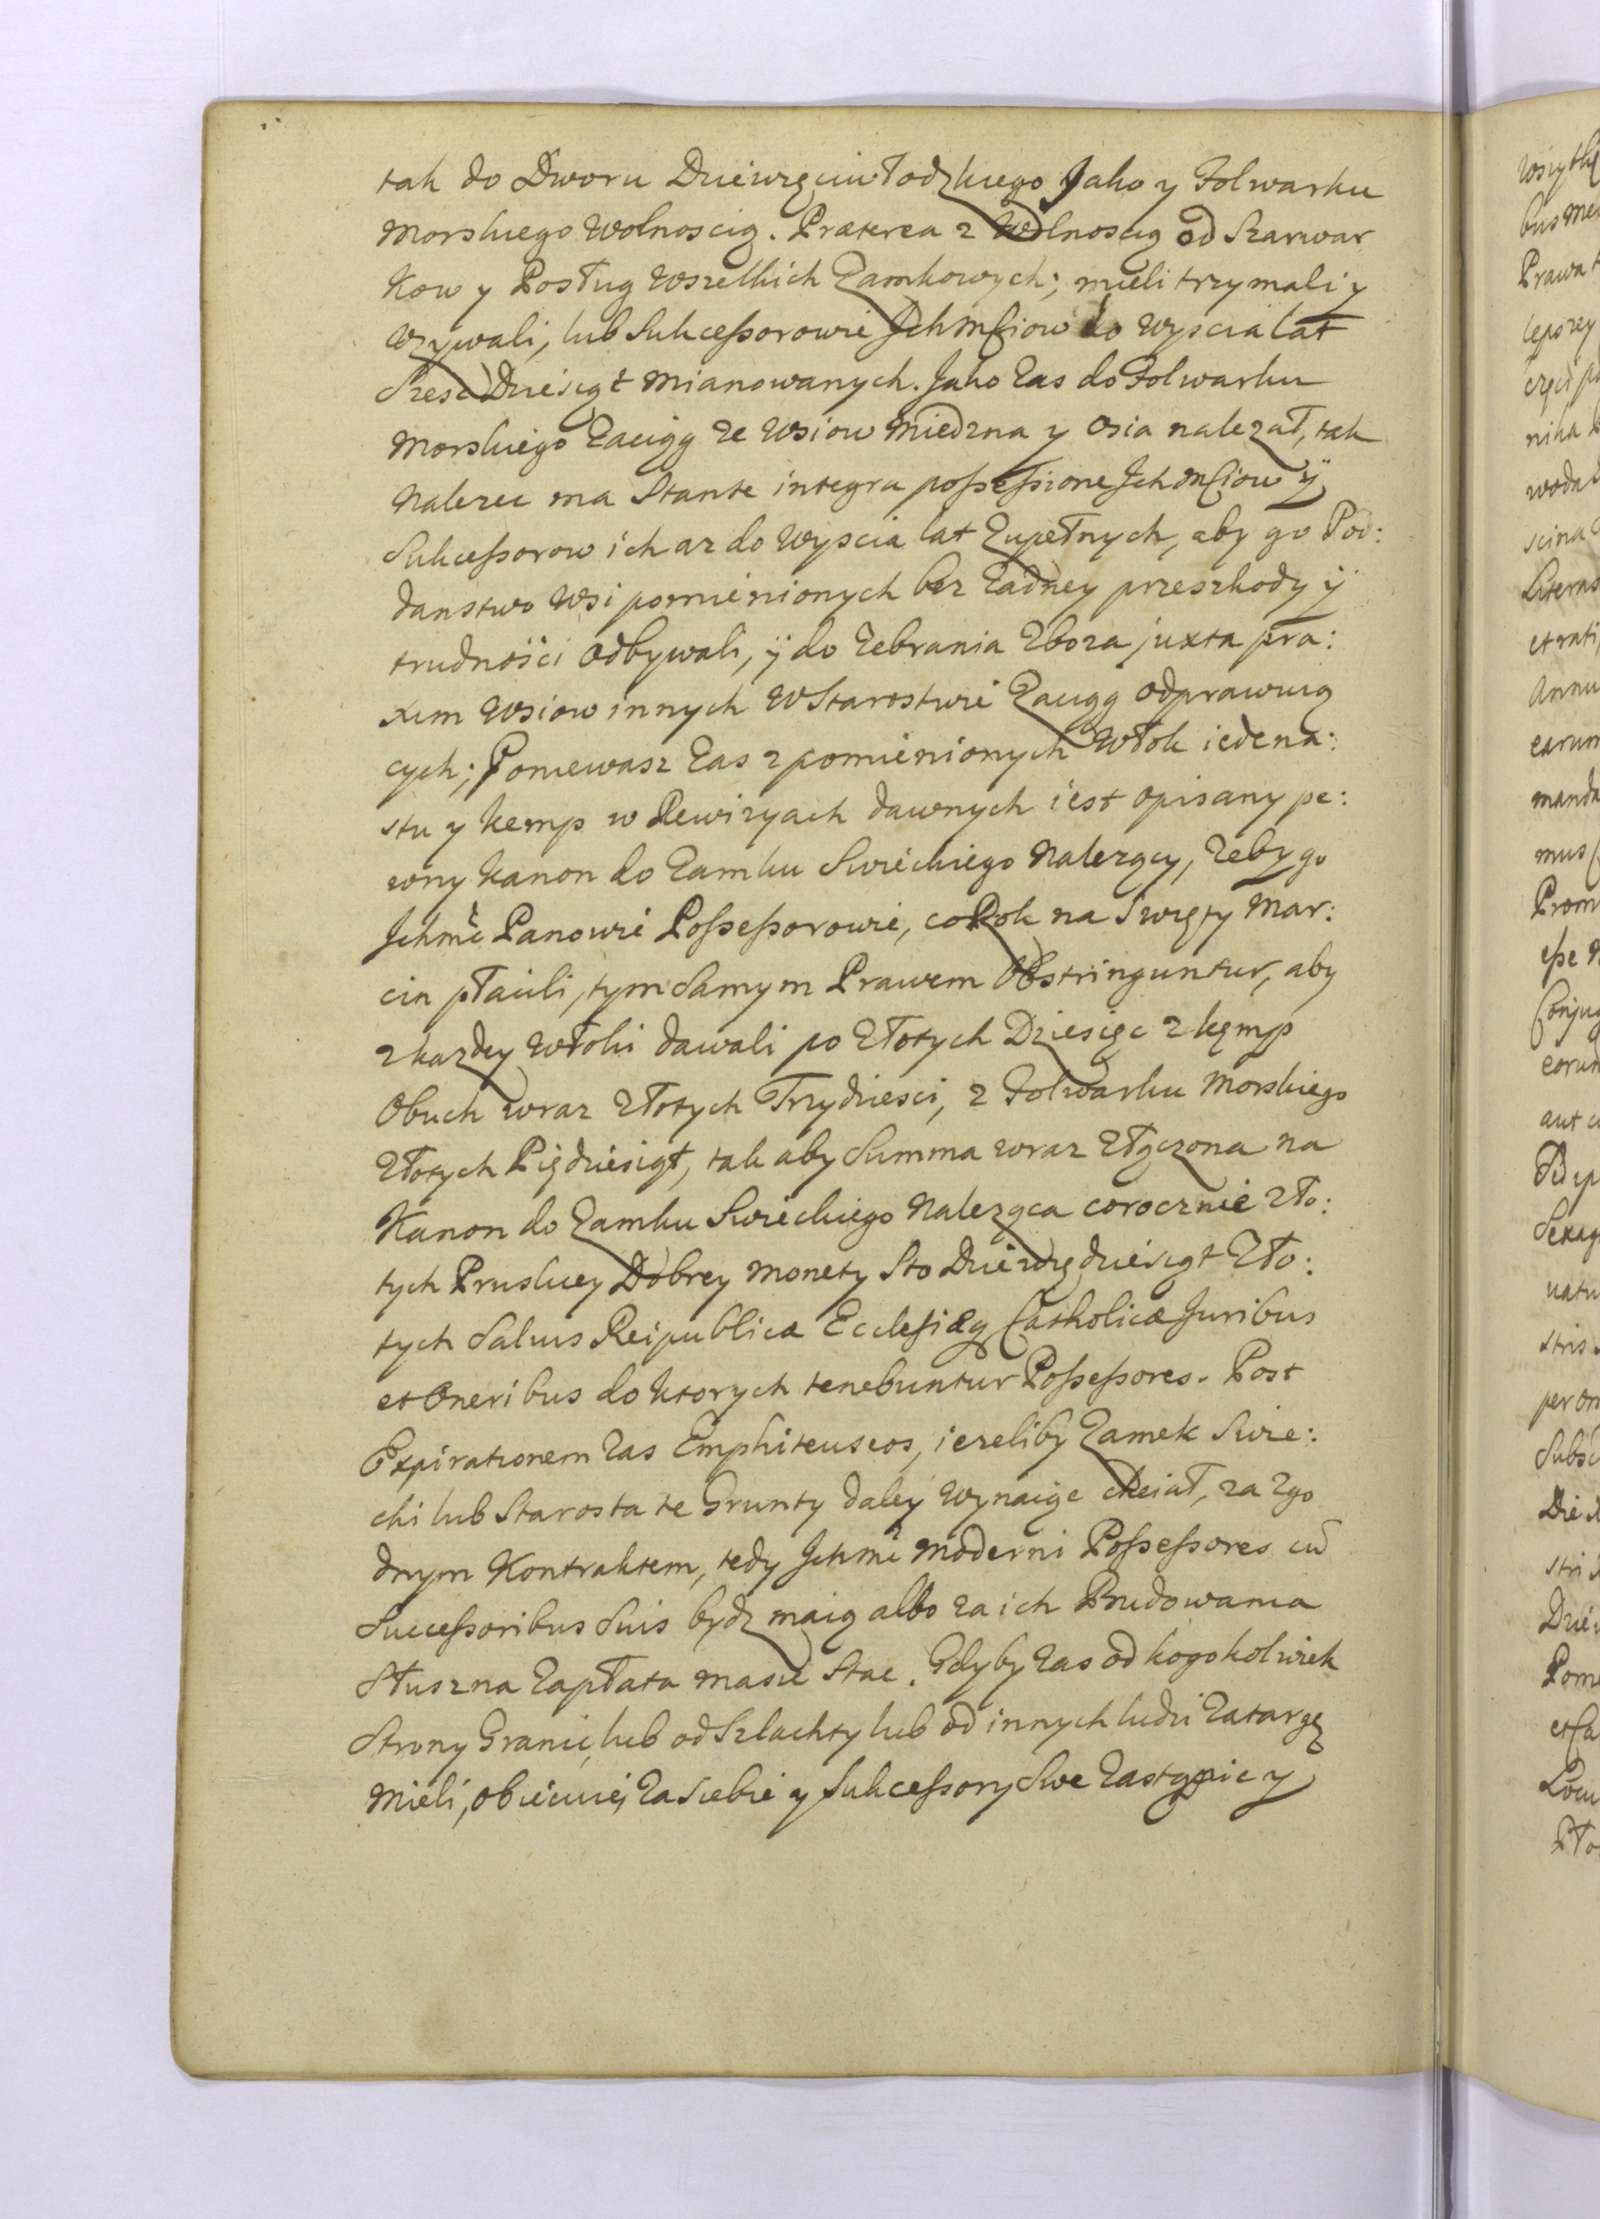 tak do Dworu Dziewięciwłodzkiego Jako y Folwarku
Morskiego Wolnoscią. Præterea z Wolnoscią od Szarwar
kow y Posług Wszelkich Zamkowych; mieli trzymali y
Vzywali, lub Sukceßorowie Jchmciow do Wyscia lat
Szesc Dziesiąt mianowanych. Jako zas do Folwarku
Morskiego Zaciąg ze Wsiow Miedzna y Osia nalezał, tak
Nalezec ma Stante integra poßeßione Jchmciow ÿ
Sukceßorow ich az do Wyscia lat Zupełnych, aby go Pod:
danstwo Wsi pomienionych bez Zadney przeszkody ÿ
trudności odbywali, ÿ do Zebrania Zboza juxta pra:
xim Wsiow innych W Starostwie Zaciąg odprawuią
cych; Poniewasz Zas z pomienionych Włok iedena:
stu y kemp w Rewizyach dawnych iest opisany pe:
wny kanon do Zamku Swieckiego Nalezący, Zeby go
Jchmć Panowie Poßeßorowie, co Rok na Swięty Mar:
cin płacili, tym Samym Prawem Obstringuntur, aby
z kazdey Włoki dawali po Złotych Dziesięc z kęmp
Obuch wraz Złotych Trzydziesci, z Folwarku Morskiego
Złotych Pięдziesiąt, tak aby Summa wraz Złączona na
Kanon do Zamku Swieckiego Naleząca corocznie zło:
tych Pruskiey Dobrey Monety Sto Dziewiędziesiąt Zło:
tych Salvis Reipublicæ Ecclesiæq Catholicæ Juribus
et Oneribus do ktorych tenebuntur Poßeßores. Post
Expirationem Zas Emphiteuseos, iezeliby Zamek Swie:
cki lub Starosta te Grunty daley Wynaiąc chciał, za Zgo
dnym Kontraktem, tedy Jchmć moderni Poßeßores cū
Succeßoribus Suis bydz maią albo za ich Budowania
Słuszna Zapłata ma sie Stac. Gdyby Zas od kogokolwiek
Strony Granic, lub od Szlachty lub od innych ludzi Zatargę
Mieli, obiecuię Za Siebie y Sukceßory Swe Zastąpic y